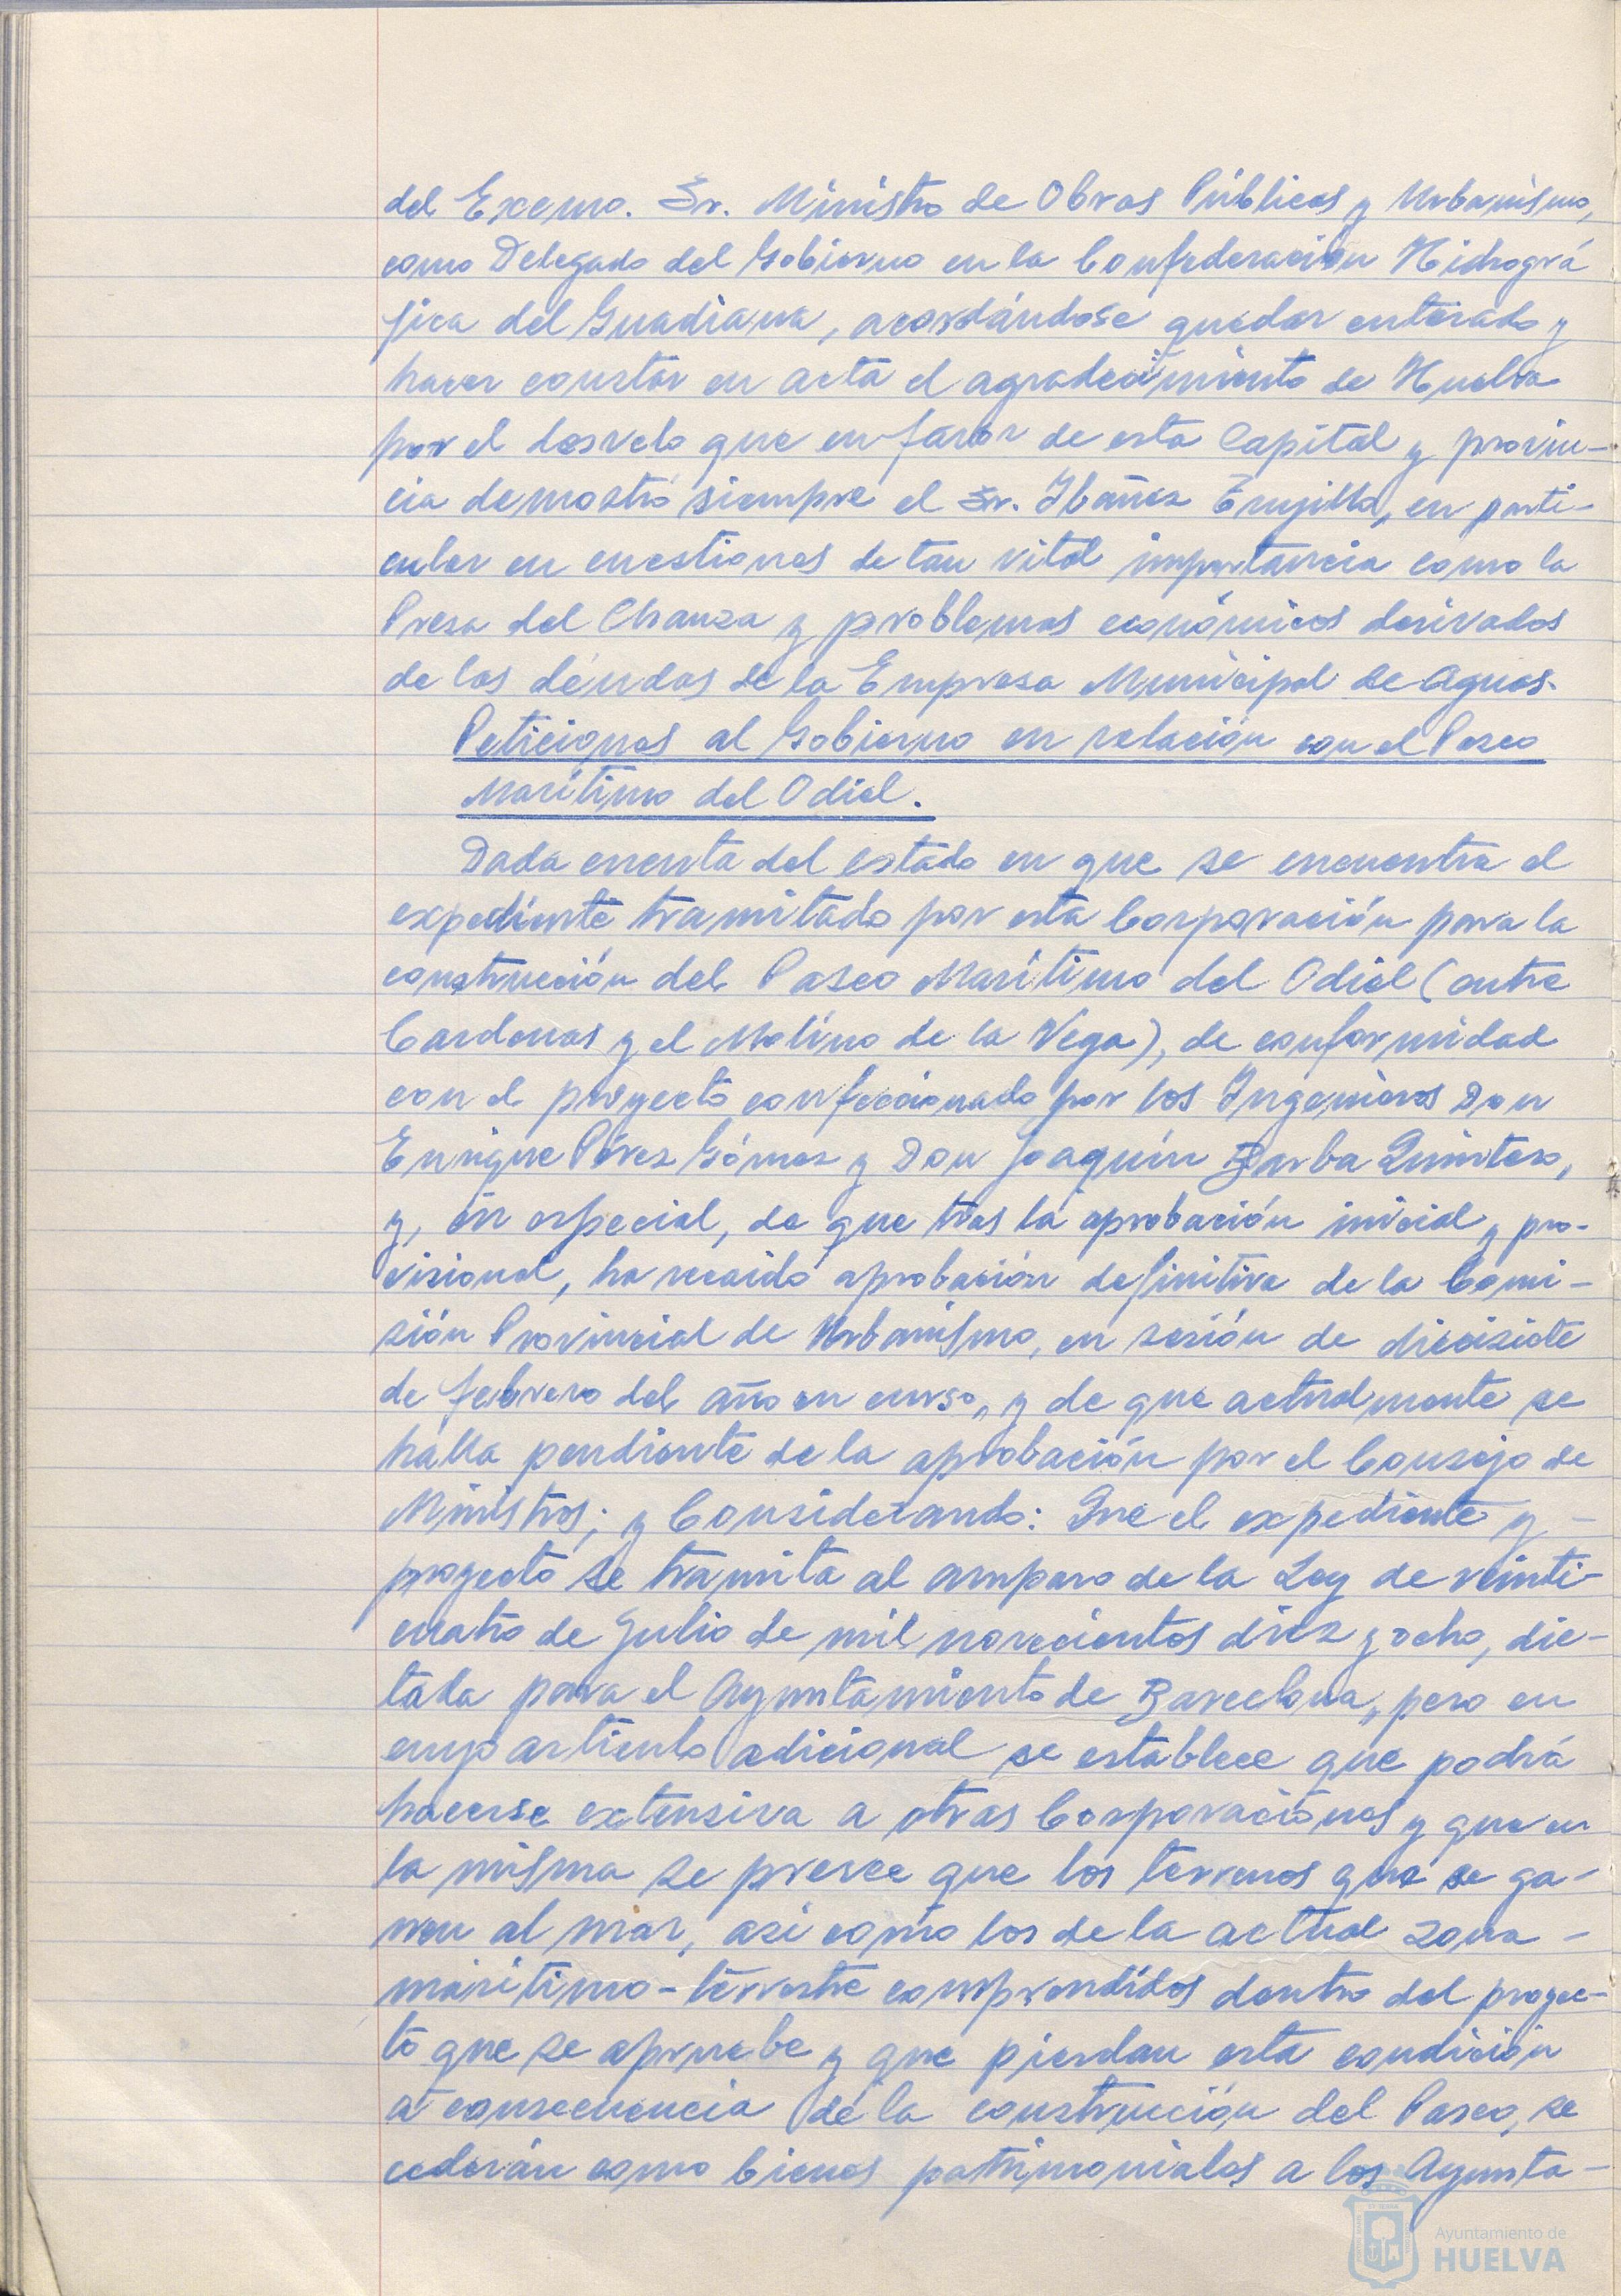 del Excmo. Sr. Ministro de Obras Públicas y Urbanismo,
como Delegado del Gobierno en la Confederación Hidrográ
fica del Guadiana, acordándose quedar enterado y
hacer constar en acta el agradecimiento de Huelva
por el desvelo que en favor de esta Capital y provin-
cia demostró siempre el Sr. Ibañez Trujillo, en parti-
cular en cuestiones de tan vital importancia como la
Presa del Chanza y problemas económicos derivados
de las déudas de la Empresa Municipal de Aguas.
Peticiones al Gobierno en relación con el Paseo
Marítimo del Odiel.
Dada cuenta del estado en que se encuentra el
expediente tramitado por esta Corporación para la
construcción del Paseo Marítimo del Odiel (entre
Cardenas y el Molino de la Vega), de conformidad
con el proyecto confeccionado por los Ingenieros Don
Enrique Pérez Gómez y Don Joaquín Barba Quintero,
y, en especial, de que tras la aprobación inicial y pro-
visional, ha recaido aprobación definitiva de la Comi-
sión Provincial de Urbanismo, en sesión de diecisiete
de febrero del año en curso, y de que actualmente se
halla pendiente de la aprobación por el Consejo de
Ministros; y Considerando: Que el expediente y -
proyecto se tramita al amparo de la Ley de veinti-
cuatro de Julio de mil novecientos diez y ocho, dic-
tada para el Ayuntamiento de Barcelona, pero en
cuyo artículo adicional se establece que podrá
hacerse extensiva a otras Corporaciones y que en
la misma se prevee que los terrenos que se ga-
nen al mar, asi como los de la actual zona -
marítimo-terrestre comprendidos dentro del proyec-
to que se apruebe y que pierdan esta condición
a consecuencia de la construcción del Paseo, se
cederán como bienes patrimoniales a los Ayunta-
Ayuntamiento de
HUELVA